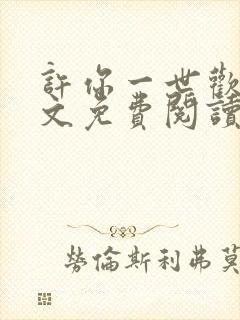 許你一世歡
文免費閱讀
勞倫斯利弗莫